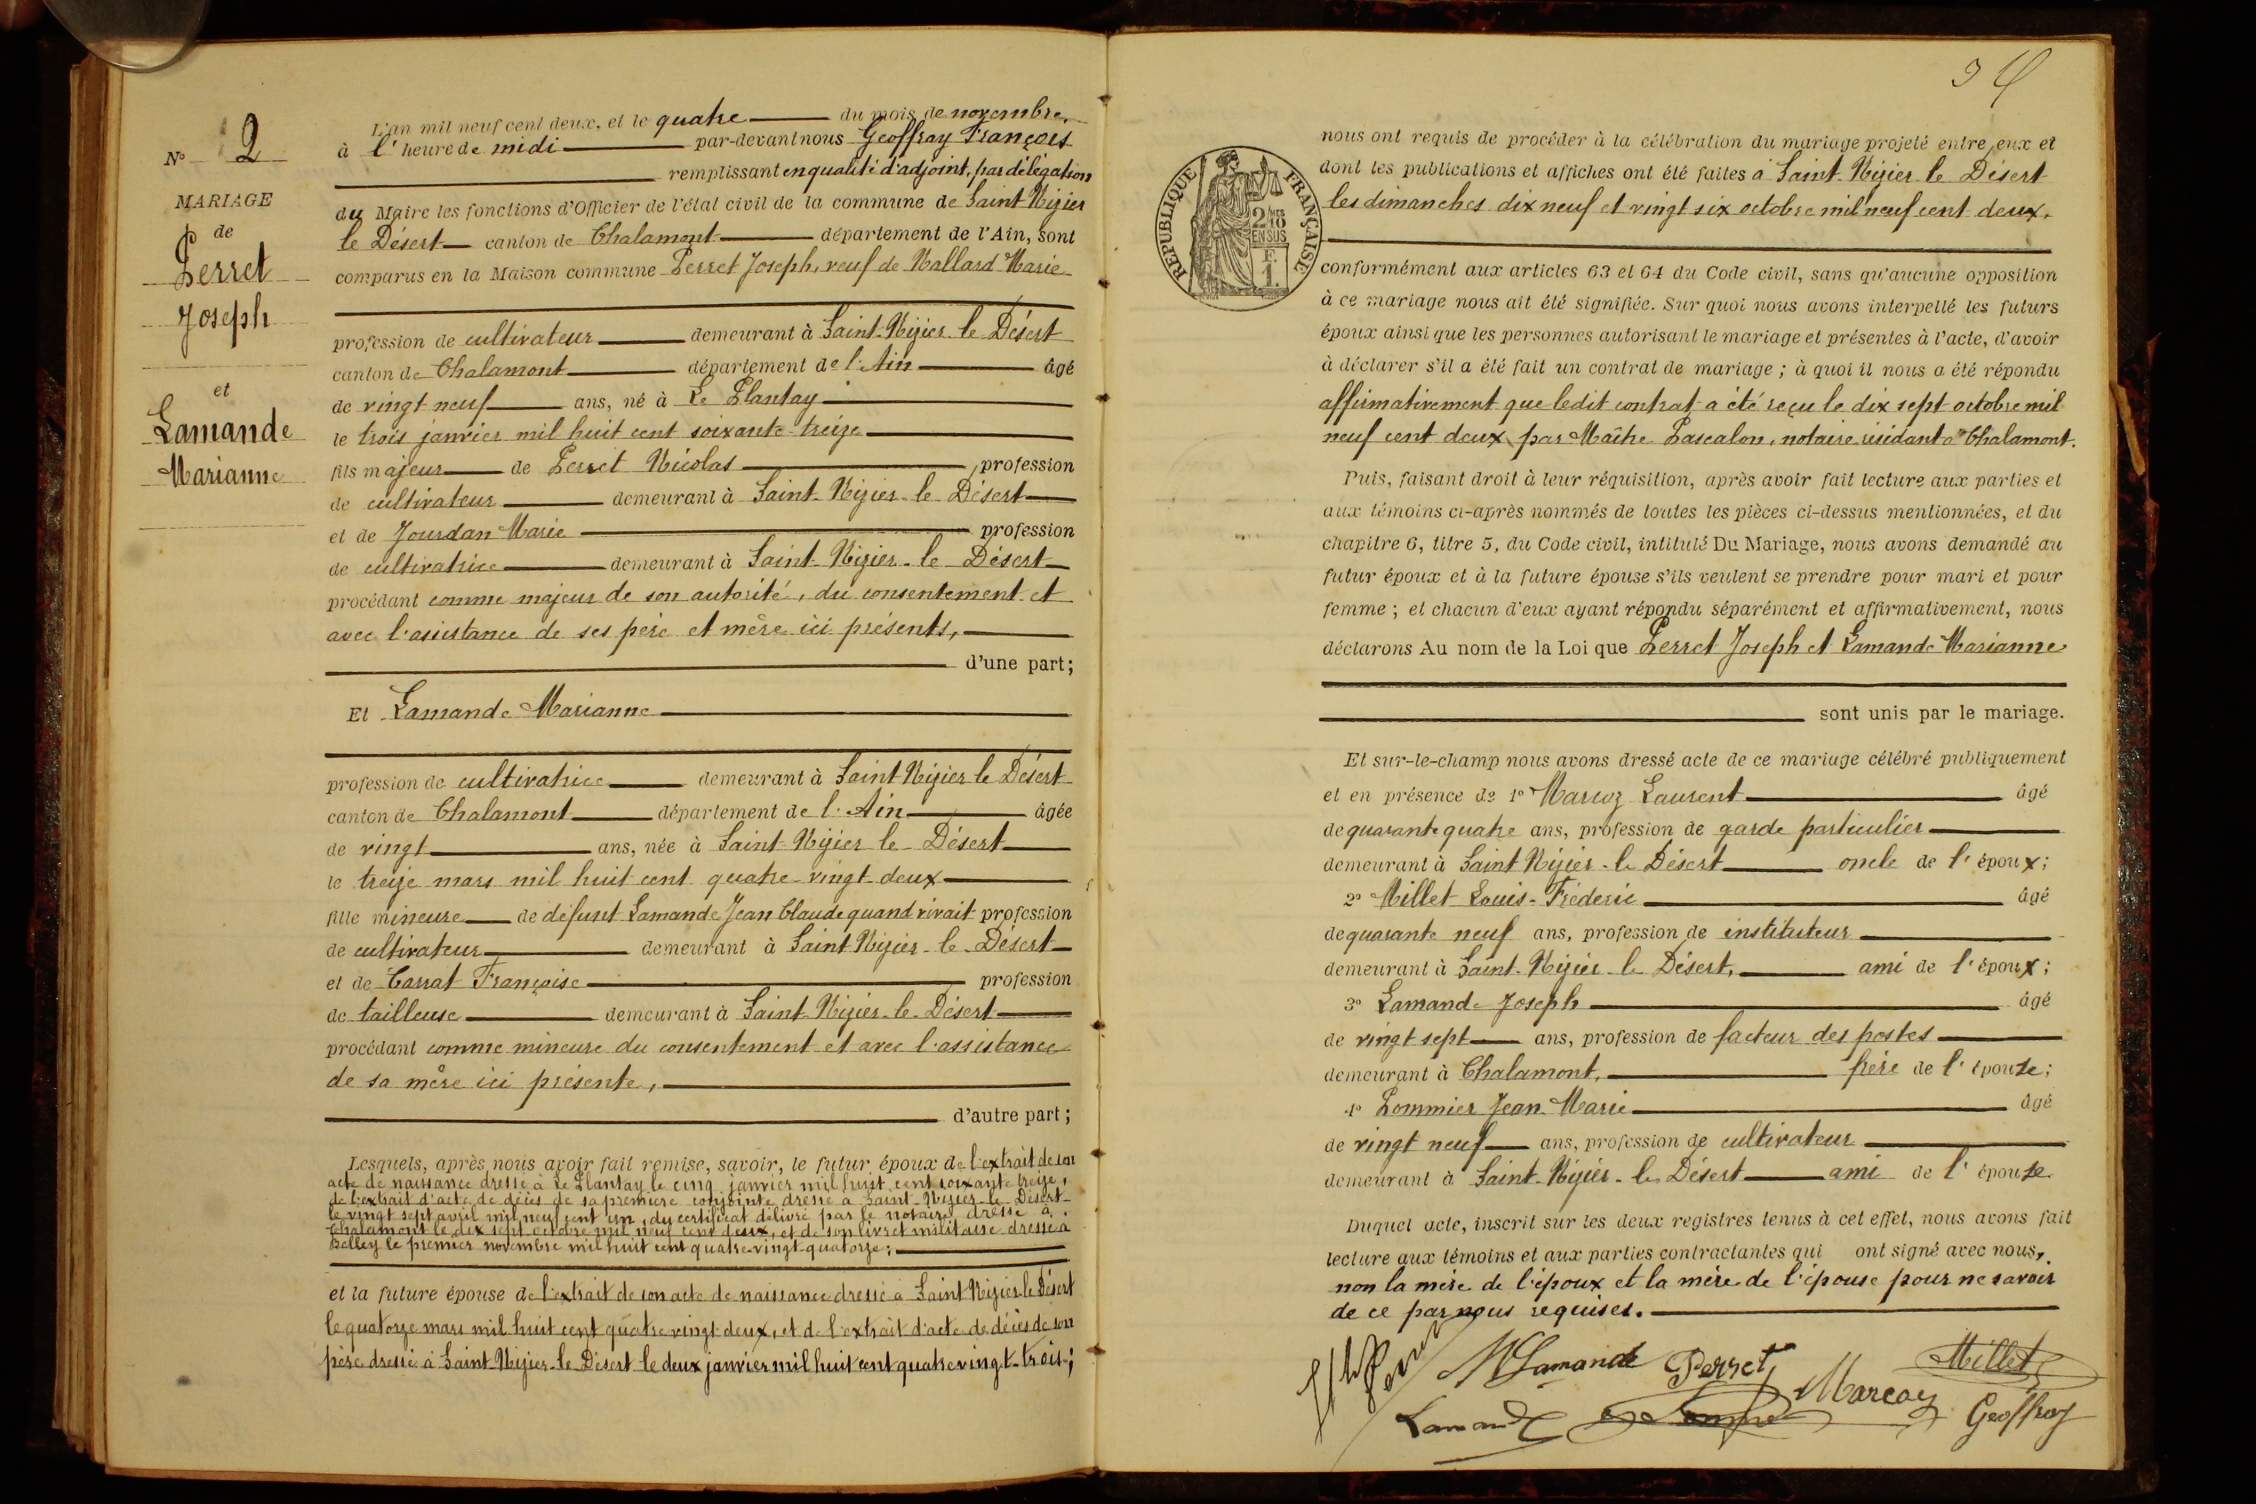 N° 2
MARIAGE
de
Perret
Joseph
et
Lamande
Marianne
L'an mil neuf cent deux, et le quatre du mois de novembre,
à l'heure de midi par-devant nous Geoffray François
remplissant en qualité d'adjoint, par délégation
du Maire les fonctions d'Officier de l'état civil de la commune de Saint Nizier
le Désert canton de Chalamont département de l'Ain, sont
comparus en la Maison commune Perret Joseph, veuf de Mallard Marie
profession de cultivateur demeurant à Saint-Nizier-le Désert
canton de Chalamont département de l'Ain âgé
de vingt neuf ans, né à Le Plantay
le trois janvier mil huit cent soixante-treize
fils majeur de Perret Nicolas profession
de cultivateur demeurant à Saint-Nizier-le Désert
et de Jourdan Marie profession
de cultivatrice demeurant à Saint-Nizier-le Désert
procédant comme majeur de son autorité, du consentement et
avec l'assistance de ses père et mère ici présents,
d'une part;
Et Lamande Marianne
profession de cultivatrice demeurant à Saint Nizier le Désert
canton de Chalamont département de l'Ain âgée
de vingt ans, née à Saint-Nizier le Désert
le treize mars mil huit cent quatre-vingt-deux
fille mineure de défunt Lamande Jean Claude quand vivait profession
de cultivateur demeurant à Saint Nizier-le-Désert
et de Carrat Françoise profession
de tailleuse demeurant à Saint-Nizier-le-Désert
procédant comme mineure du consentement et avec l'assistance
de sa mère ici présente,
d'autre part;
Lesquels, après nous avoir fait remise, savoir, le futur époux de l'extrait de son
acte de naissance dressé à Le Plantay le cinq janvier mil huit cent soixante treize,
de l'extrait d'acte de décès de sa première conjointe dressé à Saint-Nizier-le-Désert
le vingt sept avril mil neuf cent un, du certificat délivré par le notaire dressé à
Chalamont le dix sept octobre mil neuf cent deux, et de son livret militaire dressé à
Belley le premier novembre mil huit cent quatre-vingt-quatorze;
et la future épouse de l'extrait de son acte de naissance dressé à Saint Nizier le Désert
le quatorze mars mil huit cent quatre vingt-deux, et de l'extrait d'acte de décès de son
père dressé à Saint-Nizier-le Désert le deux janvier mil huit cent quatre vingt-trois;
RÉPUBLIQUE FRANÇAISE
2/10
EN SUS
F.
1.
nous ont requis de procéder à la célébration du mariage projeté entre eux et
dont les publications et affiches ont été faites à Saint-Nizier le Désert
les dimanches dix neuf et vingt six octobre mil neuf cent deux,
conformément aux articles 63 et 64 du Code civil, sans qu'aucune opposition
à ce mariage nous ait été signifiée. Sur quoi nous avons interpellé les futurs
époux ainsi que les personnes autorisant le mariage et présentes à l'acte, d'avoir
à déclarer s'il a été fait un contrat de mariage; à quoi il nous a été répondu
affirmativement que ledit contrat a été reçu le dix sept octobre mil
neuf cent deux, par Maître Pascalon, notaire résidant à Chalamont.
Puis, faisant droit à leur réquisition, après avoir fait lecture aux parties et
aux témoins ci-après nommés de toutes les pièces ci-dessus mentionnées, et du
chapitre 6, titre 5, du Code civil, intitulé Du Mariage, nous avons demandé au
futur époux et à la future épouse s'ils veulent se prendre pour mari et pour
femme; et chacun d'eux ayant répondu séparément et affirmativement, nous
déclarons Au nom de la Loi que Perret Joseph et Lamande Marianne
sont unis par le mariage.
Et sur-le-champ nous avons dressé acte de ce mariage célébré publiquement
et en présence de 1° Marcoz Laurent âgé
de quarante quatre ans, profession de garde particulier
demeurant à Saint Nizier-le Désert oncle de l'époux;
2° Millet Louis-Fréderic âgé
de quarante neuf ans, profession de instituteur
demeurant à Saint-Nizier le Désert, ami de l'époux;
3° Lamande Joseph âgé
de vingt sept ans, profession de facteur des postes
demeurant à Chalamont, frère de l'épouse;
4° Pommier Jean-Marie âgé
de vingt neuf ans, profession de cultivateur
demeurant à Saint-Nizier-le Désert ami de l'épouse
Duquel acte, inscrit sur les deux registres tenus à cet effet, nous avons fait
lecture aux témoins et aux parties contractantes qui ont signé avec nous,
non la mère de l'époux et la mère de l'épouse pour ne savoir
de ce par nous requises.
M Lamande Perret Millet
Lamande Marcoz Geoffray